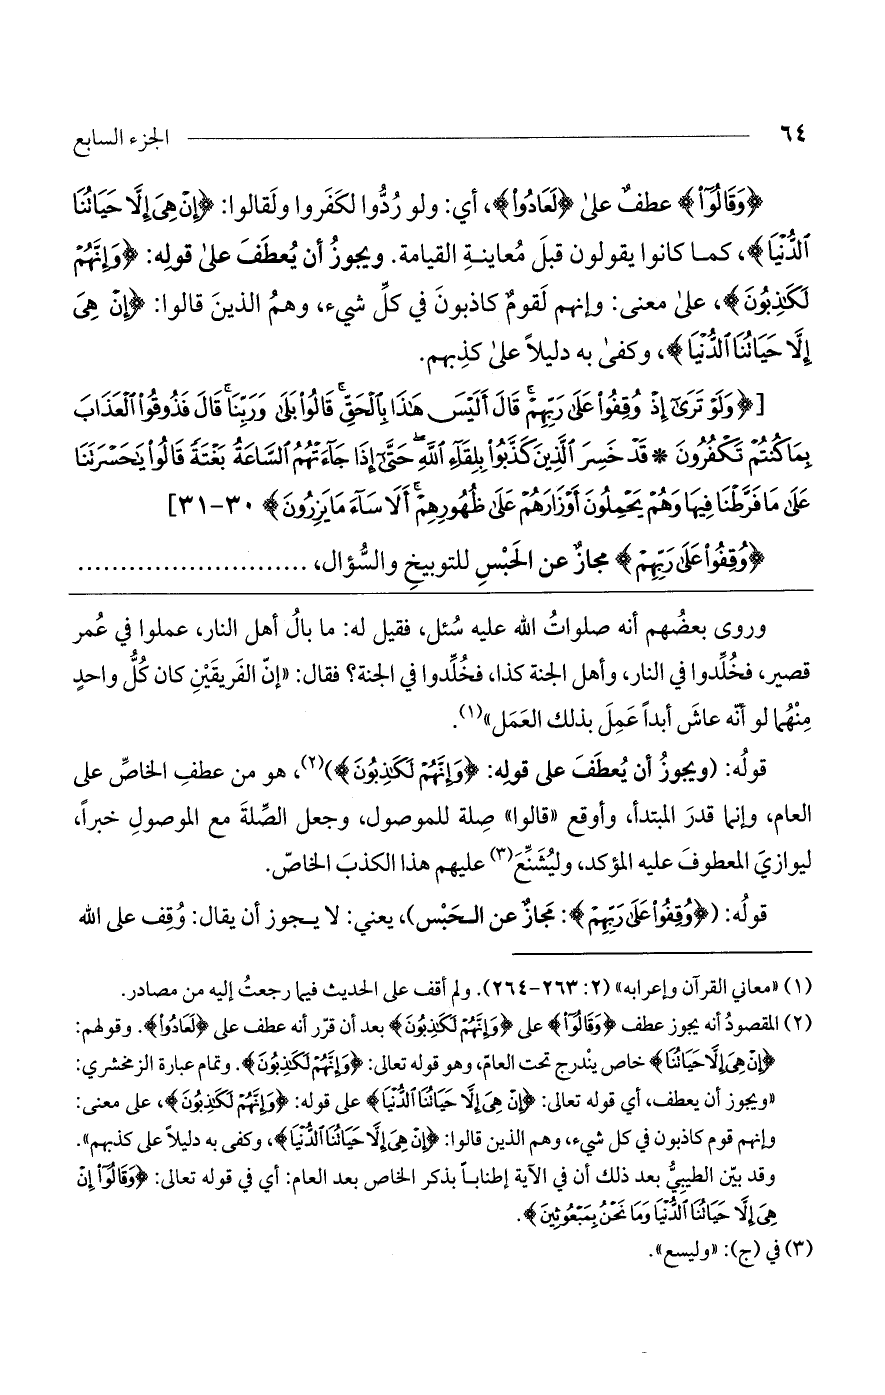 ٦٤ الجزء السابع
﴿وَقَالُوٓاْ﴾ عطفٌ علىٰ ﴿لَعَادُواْ﴾، أي: ولو رُدُّوا لكَفَروا ولَقالوا: ﴿إِنْ هِىَ إِلَّا حَيَاتُنَا
ٱلدُّنْيَا﴾، كمـا كانوا يقولون قبلَ مُعاينـةِ القيامة. ويجوزُ أن يُعطَفَ علىٰ قولِه: ﴿وَإِنَّهُمْ
لَكَٰذِبُونَ﴾، علىٰ معنى: وإنهم لَقومٌ كاذبونَ في كلِّ شيء، وهمُ الذينَ قالوا: ﴿إِنْ هِىَ
إِلَّا حَيَاتُنَا ٱلدُّنْيَا﴾، وكفىٰ به دليلاً علىٰ كذِبهم.
[﴿وَلَوْ تَرَىٰٓ إِذْ وُقِفُواْ عَلَىٰ رَبِّهِمْ ۚ قَالَ أَلَيْسَ هَٰذَا بِٱلْحَقِّ ۚ قَالُواْ بَلَىٰ وَرَبِّنَا ۚ قَالَ فَذُوقُواْ ٱلْعَذَابَ
بِمَا كُنتُمْ تَكْفُرُونَ * قَدْ خَسِرَ ٱلَّذِينَ كَذَّبُواْ بِلِقَآءِ ٱللَّهِ ۖ حَتَّىٰٓ إِذَا جَآءَتْهُمُ ٱلسَّاعَةُ بَغْتَةً قَالُواْ يَٰحَسْرَتَنَا
عَلَىٰ مَا فَرَّطْنَا فِيهَا وَهُمْ يَحْمِلُونَ أَوْزَارَهُمْ عَلَىٰ ظُهُورِهِمْ ۚ أَلَا سَآءَ مَا يَزِرُونَ﴾ ٣٠-٣١]
﴿وُقِفُواْ عَلَىٰ رَبِّهِمْ﴾ مجازٌ عن الحَبْسِ للتوبيخِ والسُّؤال، ...........................
وروى بعضُهم أنه صلواتُ الله عليه سُئل، فقيل له: ما بالُ أهل النار، عملوا في عُمر
قصير، فخُلِّدوا في النار، وأهل الجنة كذا، فخُلِّدوا في الجنة؟ فقال: «إنّ الفَريقَيْنِ كان كُلُّ واحدٍ
مِنْهُما لو أنّه عاشَ أبداً عَمِلَ بذلك العَمَل»(١).
قولُه: (ويجوزُ أن يُعطَفَ على قولِه: ﴿وَإِنَّهُمْ لَكَٰذِبُونَ﴾)(٢)، هو من عطفِ الخاصِّ على
العام، وإنما قدرَ المبتدأ، وأوقع «قالوا» صِلة للموصول، وجعل الصِّلةَ مع الموصولِ خبراً،
ليوازيَ المعطوفَ عليه المؤكد، وليُشَنِّعَ(٣) عليهم هذا الكذبَ الخاصّ.
قولُه: (﴿وُقِفُواْ عَلَىٰ رَبِّهِمْ﴾: مَجازٌ عن الـحَبْس)، يعني: لا يـجوز أن يقال: وُقِف على الله
(١) «معاني القرآن وإعرابه» (٢: ٢٦٣-٢٦٤). ولم أقف على الحديث فيما رجعتُ إليه من مصادر.
(٢) المقصودُ أنه يجوز عطف ﴿وَقَالُوٓاْ﴾ على ﴿وَإِنَّهُمْ لَكَٰذِبُونَ﴾ بعد أن قرّر أنه عطف على ﴿لَعَادُواْ﴾. وقولهم:
﴿إِنْ هِىَ إِلَّا حَيَاتُنَا﴾ خاص يندرج تحت العامّ، وهو قوله تعالى: ﴿وَإِنَّهُمْ لَكَٰذِبُونَ﴾. وتمام عبارة الزمخشري:
«ويجوز أن يعطف، أي قوله تعالى: ﴿إِنْ هِىَ إِلَّا حَيَاتُنَا ٱلدُّنْيَا﴾ على قوله: ﴿وَإِنَّهُمْ لَكَٰذِبُونَ﴾، على معنى:
وإنهم قوم كاذبون في كل شيء، وهم الذين قالوا: ﴿إِنْ هِىَ إِلَّا حَيَاتُنَا ٱلدُّنْيَا﴾، وكفى به دليلاً على كذبهم».
وقد بيّن الطيبيُّ بعد ذلك أن في الآية إطناباً بذكر الخاص بعد العام: أي في قوله تعالى: ﴿وَقَالُوٓاْ إِنْ
هِىَ إِلَّا حَيَاتُنَا ٱلدُّنْيَا وَمَا نَحْنُ بِمَبْعُوثِينَ﴾.
(٣) في (ج): «وليسع».